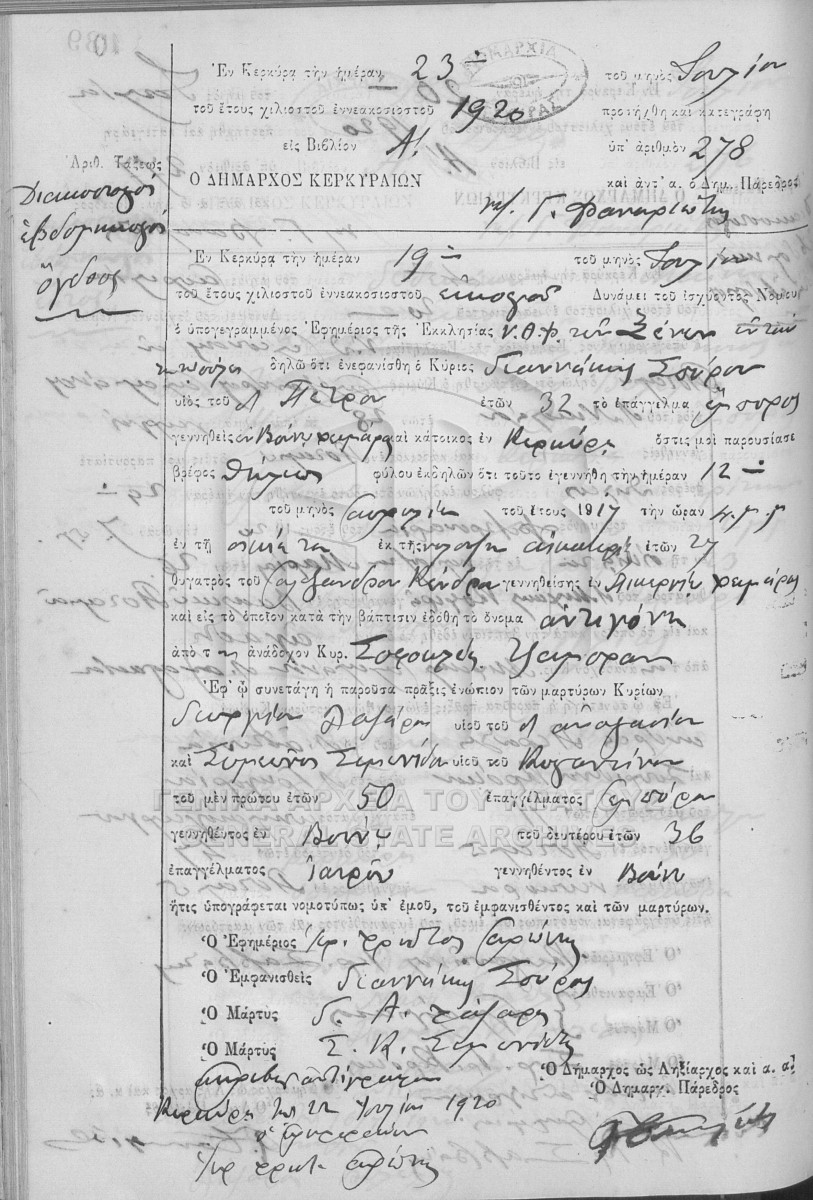 Ἐν Κερκύρᾳ τὴν ἡμέραν 23 τοῦ μηνὸς Ἰουλίου
τοῦ ἔτους χιλιοστοῦ ἐννεακοσιοστοῦ 1920 προσήχθη καὶ κατεγράφη
εἰς Βιβλίον Α! ὑπ' ἀριθμὸν 278
Ἀριθ. Τάξεως
Ο ΔΗΜΑΡΧΟΣ ΚΕΡΚΥΡΑΙΩΝ καὶ ἀντ' α. ὁ Δημ. Πάρεδρος
Διακοσιοστὸς
ἑβδομηκοστὸς
ὄγδοος
Γ. Φαναριώτης
Ἐν Κερκύρᾳ τὴν ἡμέραν 19 τοῦ μηνὸς Ἰουλίου
τοῦ ἔτους χιλιοστοῦ ἐννεακοσιοστοῦ εἰκοστοῦ Δυνάμει τοῦ ἰσχύοντος Νόμου
ὁ ὑπογεγραμμένος Ἐφημέριος τῆς Ἐκκλησίας τῶν Ξένων
δηλῶ ὅτι ἐνεφανίσθη ὁ Κύριος Γιαννάκης Σούρου
υἱὸς τοῦ Πέτρου ἐτῶν 32 τὸ ἐπάγγελμα ἔμπορος
γεννηθεὶς ἐν καὶ κάτοικος ἐν Κερκύρᾳ ὅστις μοὶ παρουσίασε
βρέφος θήλεως φύλου ἐκδηλῶν ὅτι τοῦτο ἐγεννήθη τὴν ἡμέραν 12
τοῦ μηνὸς Ἀπριλίου τοῦ ἔτους 1917 τὴν ὥραν 4 μ. μ.
ἐν τῇ οἰκίᾳ του ἐκ τῆς συζύγου Αἰκατερ. ἐτῶν 27
θυγατρὸς τοῦ Ἀλεξάνδρου γεννηθείσης ἐν
καὶ εἰς τὸ ὁποῖον κατὰ τὴν βάπτισιν ἐδόθη τὸ ὄνομα Ἀντιγόνη
ἀπὸ τ ἀνάδοχον Κυρ. Σοφοκλῆς
Ἐφ' ᾧ συνετάγη ἡ παροῦσα πρᾶξις ἐνώπιον τῶν μαρτύρων Κυρίων
Γεωργίου Λαζάρη υἱοῦ τοῦ Ἀναστασίου
καὶ Συμεῶνος Συμεωνίδη υἱοῦ τοῦ Κωσταντίνου
τοῦ μὲν πρώτου ἐτῶν 50 ἐπαγγέλματος ἐμπόρου
ΓΕΝΙΚΑ ΑΡΧΕΙΑ ΤΟΥ ΚΡΑΤΟΥΣ
GENERAL STATE ARCHIVES
γεννηθέντος ἐν τοῦ δευτέρου ἐτῶν 36
ἐπαγγέλματος Ἰατροῦ γεννηθέντος ἐν
ἥτις ὑπογράφεται νομοτύπως ὑπ' ἐμοῦ, τοῦ ἐμφανισθέντος καὶ τῶν μαρτύρων.
Ὁ Ἐφημέριος
Ὁ Ἐμφανισθεὶς Γιαννάκης Σούρος
Ὁ Μάρτυς Γ. Α. Λάζαρης
Ὁ Μάρτυς Σ. Κ. Συμεωνίδης
Ὁ Δήμαρχος ὡς Ληξίαρχος καὶ α. α.
Ὁ Δημαρχ. Πάρεδρος
Ἀκριβὲς ἀντίγραφον
Κερκύρᾳ τῇ 22 Ἰουλίου 1920